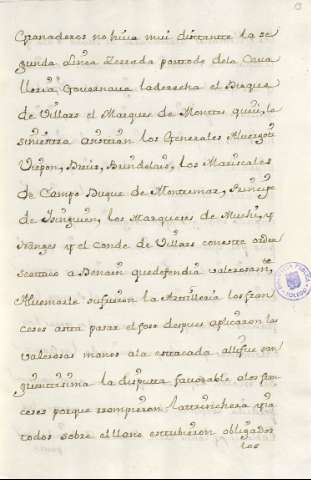 Granaderos no hiva mui distante la se
gunda Linea Zerrada por todo dela Cava
lleria, Governava la derecha el Duque
de Villars el Marques de Montes quiú, la
siniestra asistian los Generales Alvergoti
Vispon, Breris, Brendelais, los Mariscales
de Campo Duque de Montemar, Principe
de Isinguien, los Marqueses de Muchi, y
Nanges y el Conde de Villars con este orden
se ataco a Denain que defendia valerosam.te
Alvemarle sufrieron la Artilleria los fran
ceses asta pasar el foso despues aplicaron las
valerosas manos ala estacada alli fue san
grientisima la disputa favorable alos fran
ceses porque rrompieron la trinchera y ia
todos sobre el llano estubieron obligados
los